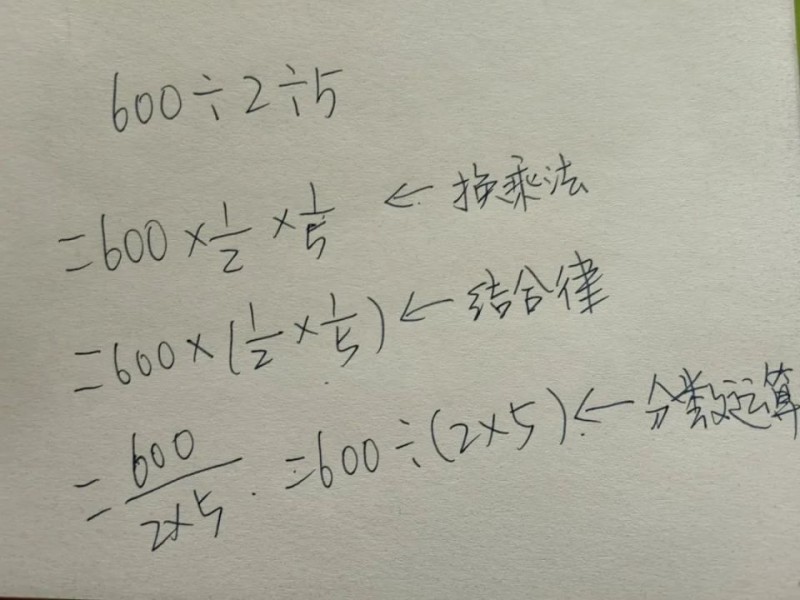 600÷2÷5
=600×1/2×1/5 ← 换乘法
=600×(1/2×1/5) ← 结合律
=600/2×5 =600÷(2×5) ← 分数运算